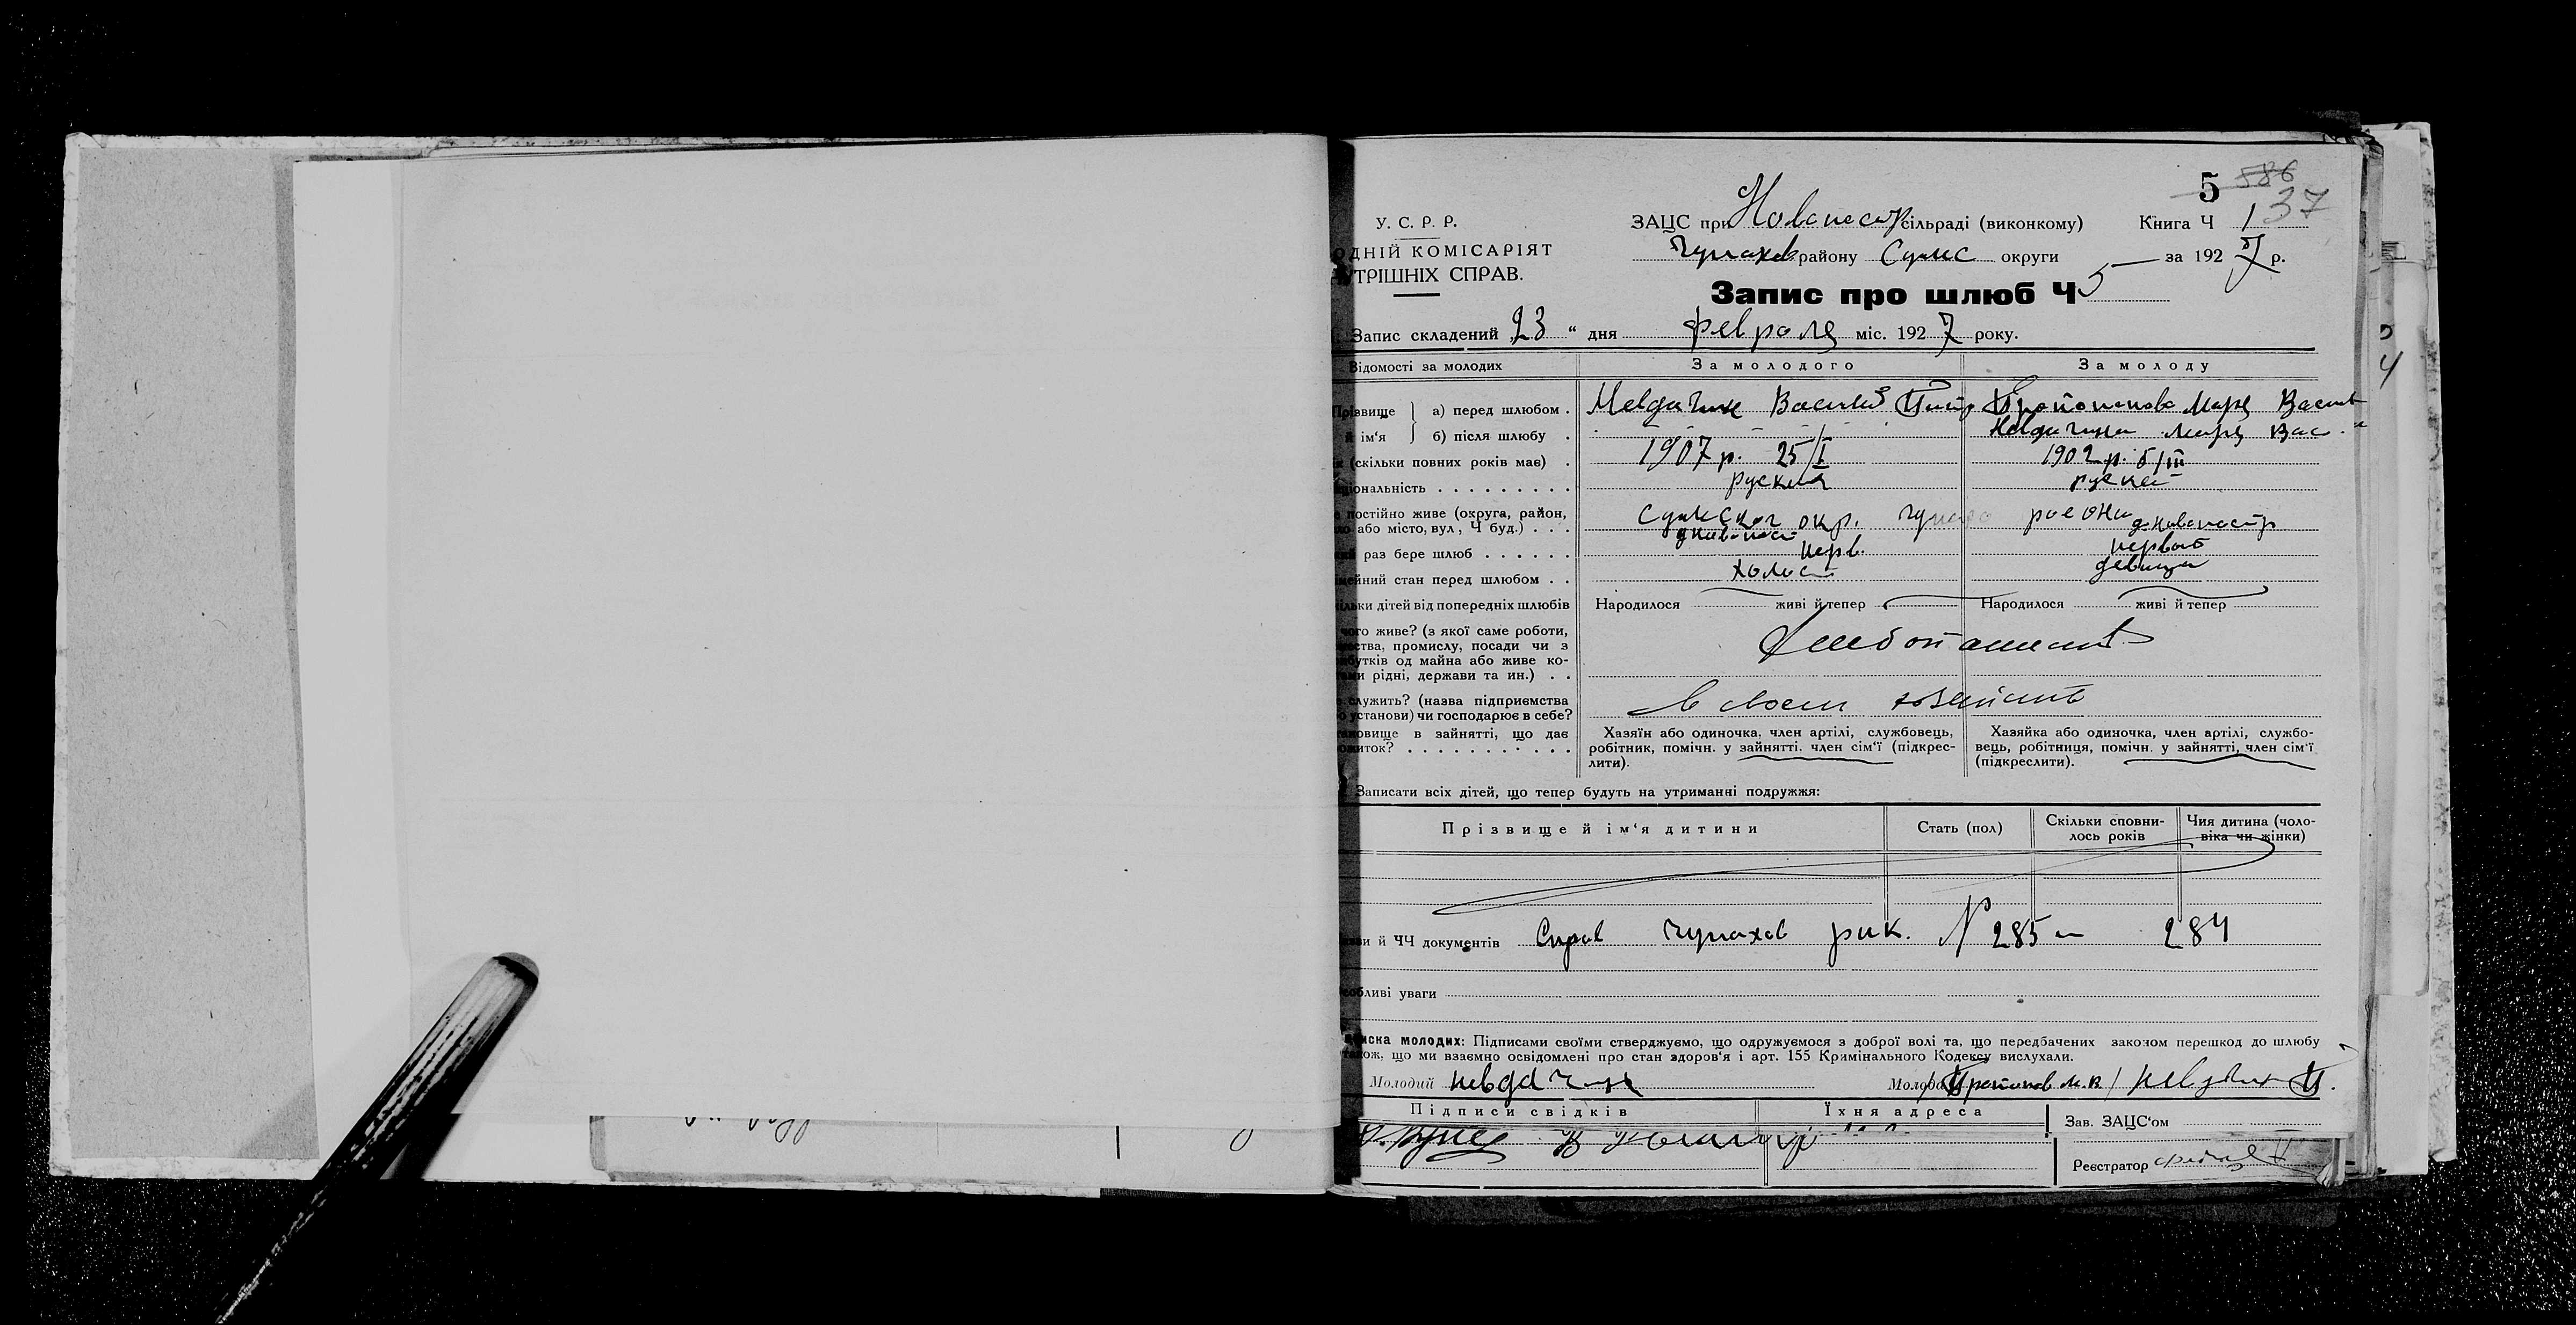 5 586
137
У. С. Р. Р.
ЗАЦС при Новопестр сільраді (виконкому) Книга Ч 1
ОДНІЙ КОМІСАРІЯТ
Чупахов району Сумс округи за 1927 р.
УТРІШНІХ СПРАВ.
Запис про шлюб Ч 5
Запис складений 23 " дня февраля міс. 1927 року.
Відомості за молодих За молодого За молоду
Прізвище й ім'я а) перед шлюбом . Невдачин Василий Протопопова Мария Васил
б) після шлюбу . Невдачина Мария Вас
(скільки повних років має) . 1907 р. 25/I 1902 р. 6/III
ціональність . . . . . . . . . руский руская
постійно живе (округа, район,
або місто, вул, Ч буд.) . . . Сумской окр. раеона
раз бере шлюб . . . . . . перв. первой
мейний стан перед шлюбом . . холост девица
ільки дітей від попередніх шлюбів Народилося живі й тепер Народилося живі й тепер
чого живе? (з якої саме роботи,
ства, промислу, посади чи з
бутків од майна або живе ко-
ми рідні, держави та ин.) . . Хлебопашест
служить? (назва підприємства
установи) чи господарює в себе? в своем хозяйств
новище в зайнятті, що дає
житок? . . . . . . . . . . .
Хазяїн або одиночка, член артілі, службовець,
робітник, помічн. у зайнятті, член сім'ї (підкрес-
лити).
Хазяйка або одиночка, член артілі, службо-
вець, робітниця, помічн. у зайнятті, член сім'ї
(підкреслити).
Записати всіх дітей, що тепер будуть на утриманні подружжя:
Прізвище й ім'я дитини Стать (пол) Скільки сповни-
лось років Чия дитина (чоло-
віка чи жінки)
й ЧЧ документів Справ Чупахов рик. N 285 и 284
обливі уваги
иска молодих: Підписами своїми стверджуємо, що одружуємося з доброї волі та, що передбачених законом перешкод до шлюбу
також, що ми взаємно освідомлені про стан здоров'я і арт. 155 Кримінального Кодексу вислухали.
Молодий Невдачин Молода Протопопов М.В /
Підписи свідків Їхня адреса
Зав. ЗАЦС'ом
Реєстратор